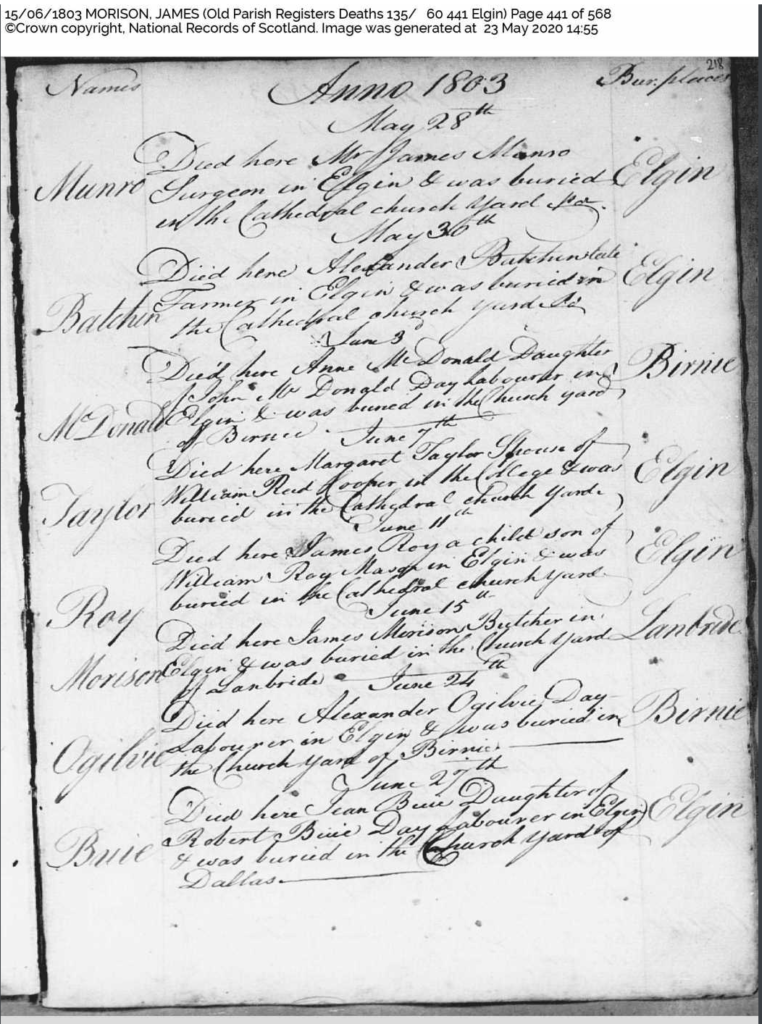 15/06/1803 MORISON, JAMES (Old Parish Registers Deaths 135/ 60 441 Elgin) Page 441 of 568
©Crown copyright, National Records of Scotland. Image was generated at 23 May 2020 14:55
218
Names Anno 1803 Bur. places
May 28th
Died here Mr James Munro
Munro Surgeon in Elgin & was buried Elgin
in the Cathedral church Yard &a.
May 30th
Died here Alexander Batchin late
Batchin Farmer in Elgin & was buried in Elgin
the Cathedral church Yard &a
June 3d
Died here Anne McDonald Daughter
McDonald John McDonald Day labourer in Birnie
Elgin & was buried in the Church yard
of Birnie
June 7th
Died here Margaret Taylor Spouse of
Taylor William Reid Cooper in the College & was Elgin
buried in the Cathedral church Yard
June 11th
Died here James Roy a child son of
Roy William Roy Mason in Elgin & was Elgin
buried in the Cathedral church Yard
June 15th
Died here James Morison Butcher in
Morison Elgin & was buried in the Church Yard Lanbride
of Lanbride
June 24th
Died here Alexander Ogilvie Day
Ogilvie Labourer in Elgin & was buried in Birnie
the Church Yard of Birnie
June 27th
Died here Jean Buie Daughter of
Buie Robert Buie Day Labourer in Elgin Elgin
& was buried in the Church Yard of
Dallas